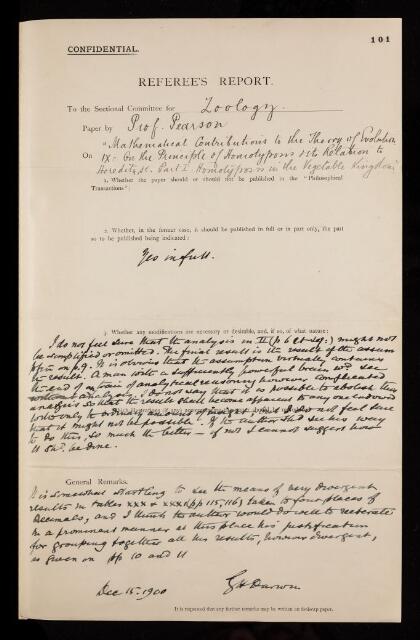 101
CONFIDENTIAL.
REFEREE'S REPORT.
To the Sectional Committee for Zoology.
Paper by Prof. Pearson
"Mathematical Contributions to the Theory of Evolution
On IX - On the Principle of Homotyposis & its Relation to
Heredity, &c. Part I. Homotyposis in the Vegetable Kingdom"
1. Whether the paper should or should not be published in the "Philosophical
Transactions":
2. Whether, in the former case, it should be published in full or in part only, the part
so to be published being indicated:
Yes in full.
3. Whether any modifications are necessary or desirable, and, if so, of what nature:
I do not feel sure that the analysis in II (p 6 et seq:) might not
be simplified or omitted. The final result is the result of the assum
ptn on p. 9. It is obvious that the assumption virtually contains
the result. A man with a sufficiently powerful brain wd see
the end of a train of analytical reasoning however complicated
without analysis. I do not say that it is possible to abolish the
analysis so that the result shall become apparent to any one endowed
with only the ordinary amount of but I do not feel sure
that it might not be possible. If the author shd see his way
to do this, so much the better – if not I cannot suggest how
it shd. be done.
General Remarks.
It is somewhat startling to see the means of very divergent
results in tables XXX & XXXI (pp 115, 116) taken to four places of
decimals, and I think the author would do well to reiterate
in a prominent manner at this place his justification
for grouping together all his results, however divergent,
as given on pp 10 and 11
Dec 15. 1900 G H Darwin
It is requested that any further remarks may be written on foolscap paper.